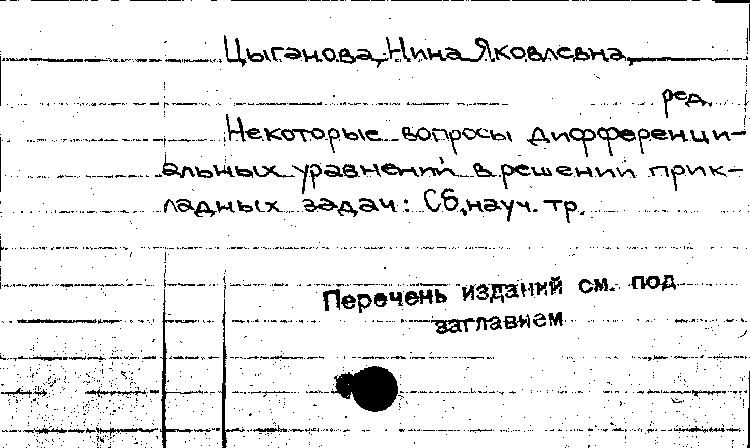 Цыганова, Нина Яковлевна,
ред.
Некоторые вопросы дифференци-
альных уравнений в решении прик-
ладных задач: Сб. науч. тр.
Перечень изданий см. под
заглавием